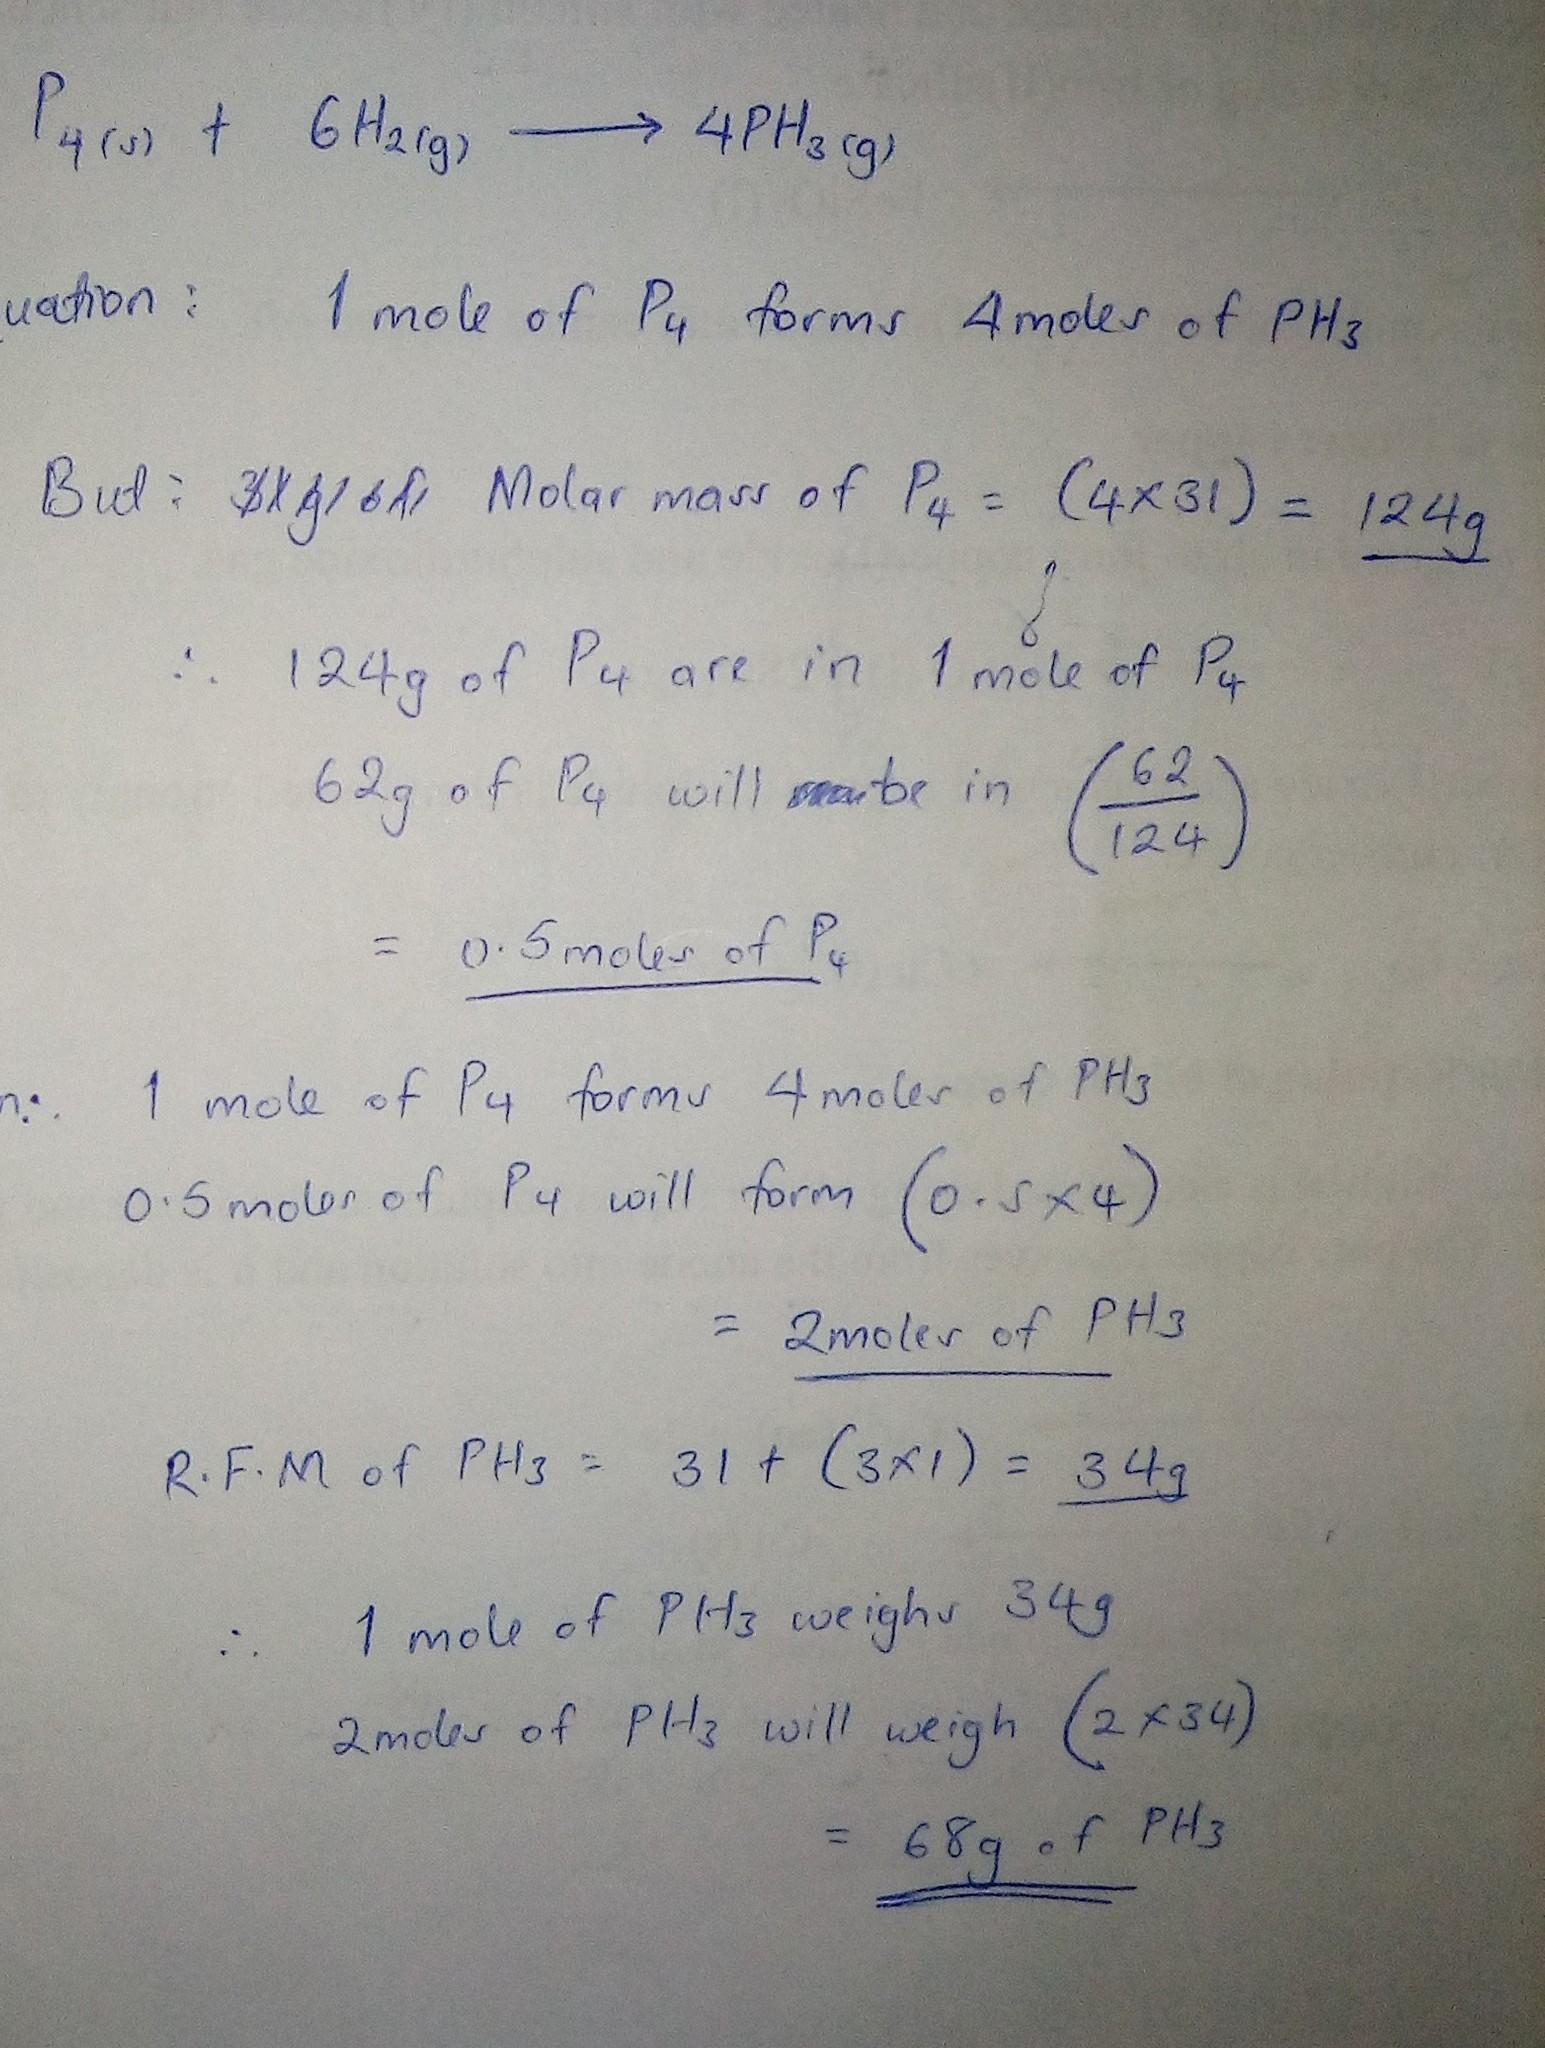 P4(s) + 6H2(g) ⟶ 4PH3(g)
uation: 1 mole of P4 forms 4moles of PH3
But: Molar mass of P4 = (4×31) = 124g
∴ 124g of P4 are in 1 mole of P4
62g of P4 will be in (62/124)
= 0.5moles of P4
n: 1 mole of P4 forms 4moles of PH3
0.5moles of P4 will form (0.5×4)
= 2moles of PH3
R.F.M of PH3 = 31 + (3×1) = 34g
∴ 1 mole of PH3 weighs 34g
2moles of PH3 will weigh (2×34)
= 68g of PH3